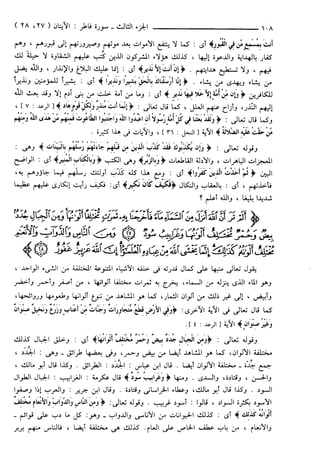 ١٠٨ الجزء الثالث ـ سورة فاطر : الآيتان (٢٧، ٢٨)
أنت بمسمع من في القبور﴾ أي : كما لا ينتفع الأموات بعد موتهم وصيرورتهم إلى قبورهم ، وهم
كفار بالهداية والدعوة إليها ، كذلك هؤلاء المشركون الذين كتب عليهم الشقاوة لا حيلة لك
فيهم ، ولا تستطيع هدايتهم . ﴿إن أنت إلا نذير﴾ أي : إنما عليك البلاغ والإنذار ، والله يضل
من يشاء ويهدي من يشاء . ﴿إنا أرسلناك بالحق بشيرا ونذيرا﴾ أي : بشيراً للمؤمنين ونذيراً
للكافرين ﴿وإن من أمة إلا خلا فيها نذير﴾ أي : وما من أمة خلت من بني آدم إلا وقد بعث الله
إليهم النذر، وأزاح عنهم العلل ، كما قال تعالى : ﴿إنما أنت منذر ولكل قوم هاد﴾ [ الرعد : ٧ ] ،
وكما قال تعالى : ﴿ولقد بعثنا في كل أمة رسولا أن اعبدوا الله واجتنبوا الطاغوت فمنهم من هدى الله ومنهم
من حقت عليه الضلالة﴾ الآية [ النحل : ٣٦ ] ، والآيات في هذا كثيرة .
وقوله تعالى : ﴿وإن يكذبوك فقد كذب الذين من قبلهم جاءتهم رسلهم بالبينات﴾ وهي :
المعجزات الباهرات ، والأدلة القاطعات ﴿وبالزبر﴾ وهي الكتب ﴿وبالكتاب المنير﴾ أي : الواضح
البين ﴿ثم أخذت الذين كفروا﴾ أي : ومع هذا كله كذب أولئك رسلهم فيما جاؤوهم به،
فأخذتهم ، أي : بالعقاب والنكال ﴿فكيف كان نكير﴾ أي: فكيف رأيت إنكاري عليهم عظيماً
شديداً بليغاً ، والله أعلم ؟
ألم تر أن الله أنزل من السماء ماء فأخرجنا به ثمرات مختلفا ألوانها ومن الجبال جدد
بيض وحمر مختلف ألوانها وغرابيب سود ومن الناس والدواب والأنعام مختلف ألوانه
كذلك إنما يخشى الله من عباده العلماء إن الله عزيز غفور
يقول تعالى منبهاً على كمال قدرته في خلقه الأشياء المتنوعة المختلفة من الشيء الواحد ،
وهو الماء الذي ينزله من السماء، يخرج به ثمرات مختلفاً ألوانها ، من أصفر وأحمر وأخضر
وأبيض ، إلى غير ذلك من ألوان الثمار، كما هو المشاهد من تنوع ألوانها وطعومها وروائحها،
كما قال تعالى في الآية الأخرى: ﴿وفي الأرض قطع متجاورات وجنات من أعناب وزرع ونخيل صنوان
وغير صنوان﴾ الآية [ الرعد : ٤ ] .
وقوله تعالى : ﴿ومن الجبال جدد بيض وحمر مختلف ألوانها﴾ أي : وخلق الجبال كذلك
مختلفة الألوان، كما هو المشاهد أيضا من بيض وحمر، وفي بعضها طرائق ـ وهي : الجدد ،
جمع جدة ـ مختلفة الألوان أيضا. قال ابن عباس : الجدد : الطرائق . وكذا قال أبو مالك ،
والحسن ، وقتادة، والسدي . ومنها ﴿وغرابيب سود﴾ قال عكرمة : الغرابيب : الجبال الطوال
السود . وكذا قال أبو مالك، وعطاء الخراساني وقتادة . وقال ابن جرير : والعرب إذا وصفوا
الأسود بكثرة السواد ، قالوا : أسود غربيب . وقوله تعالى: ﴿ومن الناس والدواب والأنعام مختلف
ألوانه كذلك﴾ أي : كذلك الحيوانات من الأناسي والدواب ـ وهو: كل ما دب على قوائم ـ
والأنعام ، من باب عطف الخاص على العام. كذلك هي مختلفة أيضا ، فالناس منهم بربر